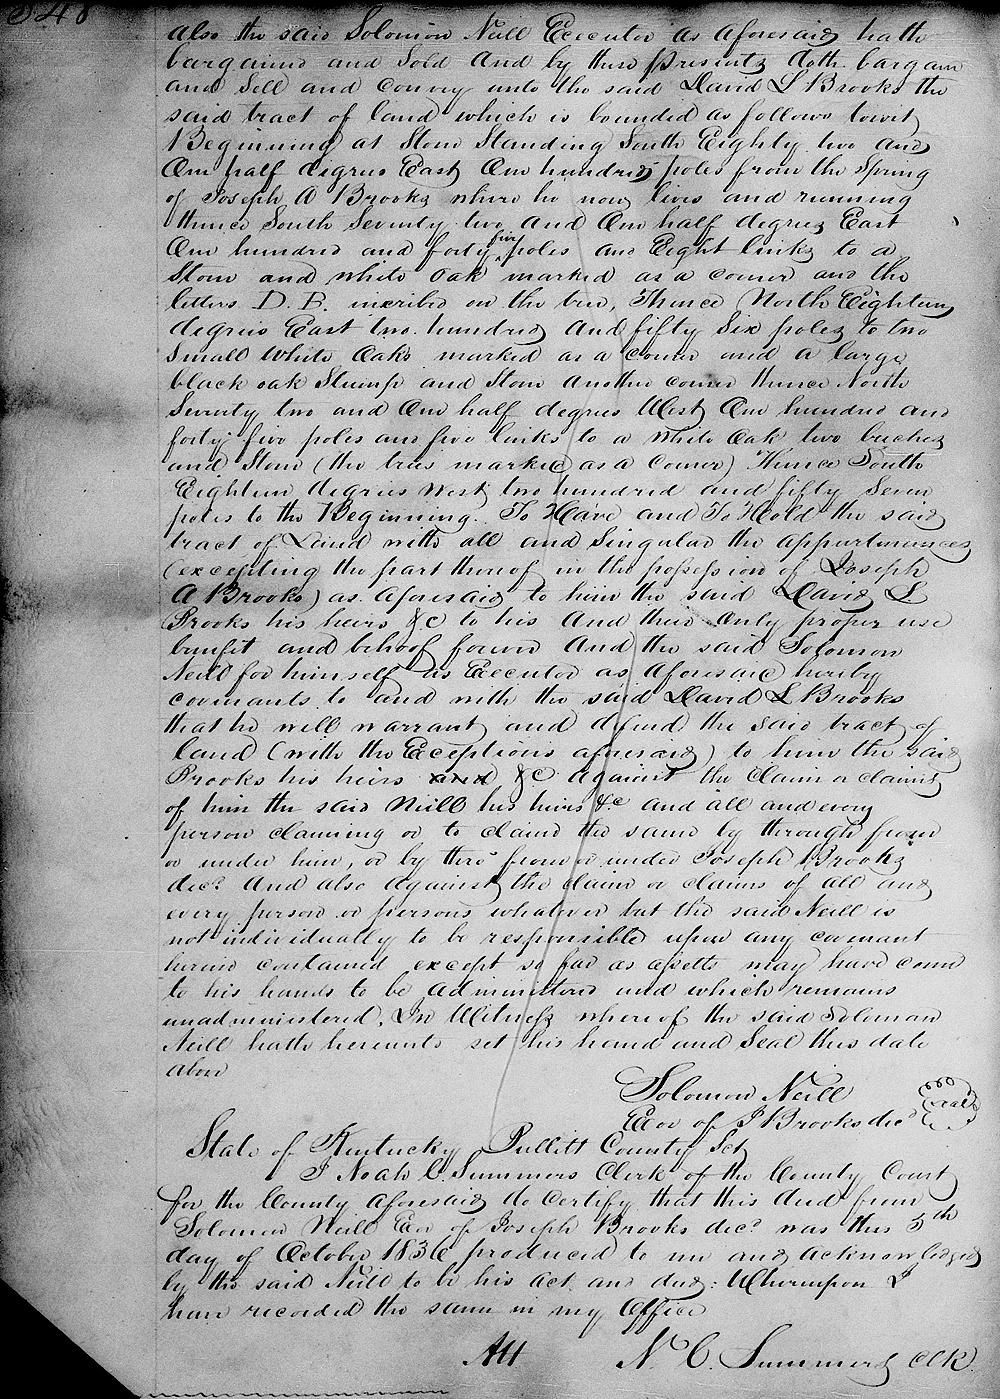 348
also the said Solomon Neill Executor as aforesaid hath
bargained and Sold and by these presents doth bargain
and Sell and convey unto the said David L Brooks the
said tract of land which is bounded as follows towit
Beginning at Stone Standing South Eighty two and
One half degrees East One hundred poles from the Spring
of Joseph A Brooks where he now lives and running
thence South Seventy two and One half degrees East
One hundred and forty five poles and Eight links to a
Stone and white oak marked as a corner and the
letters D. B. incribed on the tree, Thence North Eighteen
degrees East two hundred and fifty Six poles to two
Small White Oaks marked as a corner and a large
black oak Stump and Stone another corner thence North
Seventy two and One half degrees West One hundred and
forty five poles and five links to a white Oak two buches
and Stone (the trees marked as a corner) Thence South
Eighteen degrees west two hundred and fifty Seven
poles to the Beginning. To Have and To Hold the said
tract of Land with all and Singular the appurtenances
(excepting the part thereof in the possession of Joseph
A Brooks) as aforesaid to him the said David L
Brooks his heirs &c to his and their only proper use
benefit and behoof forever And the said Solomon
Neill for himself as Executor as aforesaid hereby
covenants to and with the said David L Brooks
that he will warrant and defend the said tract of
land (with the Exceptions aforesaid) to him the said
Brooks his heirs and &c against the claim or claims
of him the said Neill his heirs &c and all and every
person claiming or to claim the same by through from
or under him, or by thro' from or under Joseph Brooks
decd And also against the claim or claims of all and
every person or persons whatever but the said Neill is
not individually to be responsible upon any covenant
herein contained except so far as assetts may have come
to his hands to be administered and which remains
unadministered. In Witness whereof the said Solomon
Neill hath hereunto set his hand and Seal this date
above
Solomon Neill
Exor of J Brooks decd
seal
State of Kentucky Bullitt County Sct
I Noah C. Summers Clerk of the County Court
for the County aforesaid do Certify that this deed from
Solomon Neill Exor of Joseph Brooks decd was this 5th
day of October 1836 produced to me and acknowledged
by the said Neill to be his act and deed: Whereupon I
have recorded the same in my Office
Att N. C. Summers clk